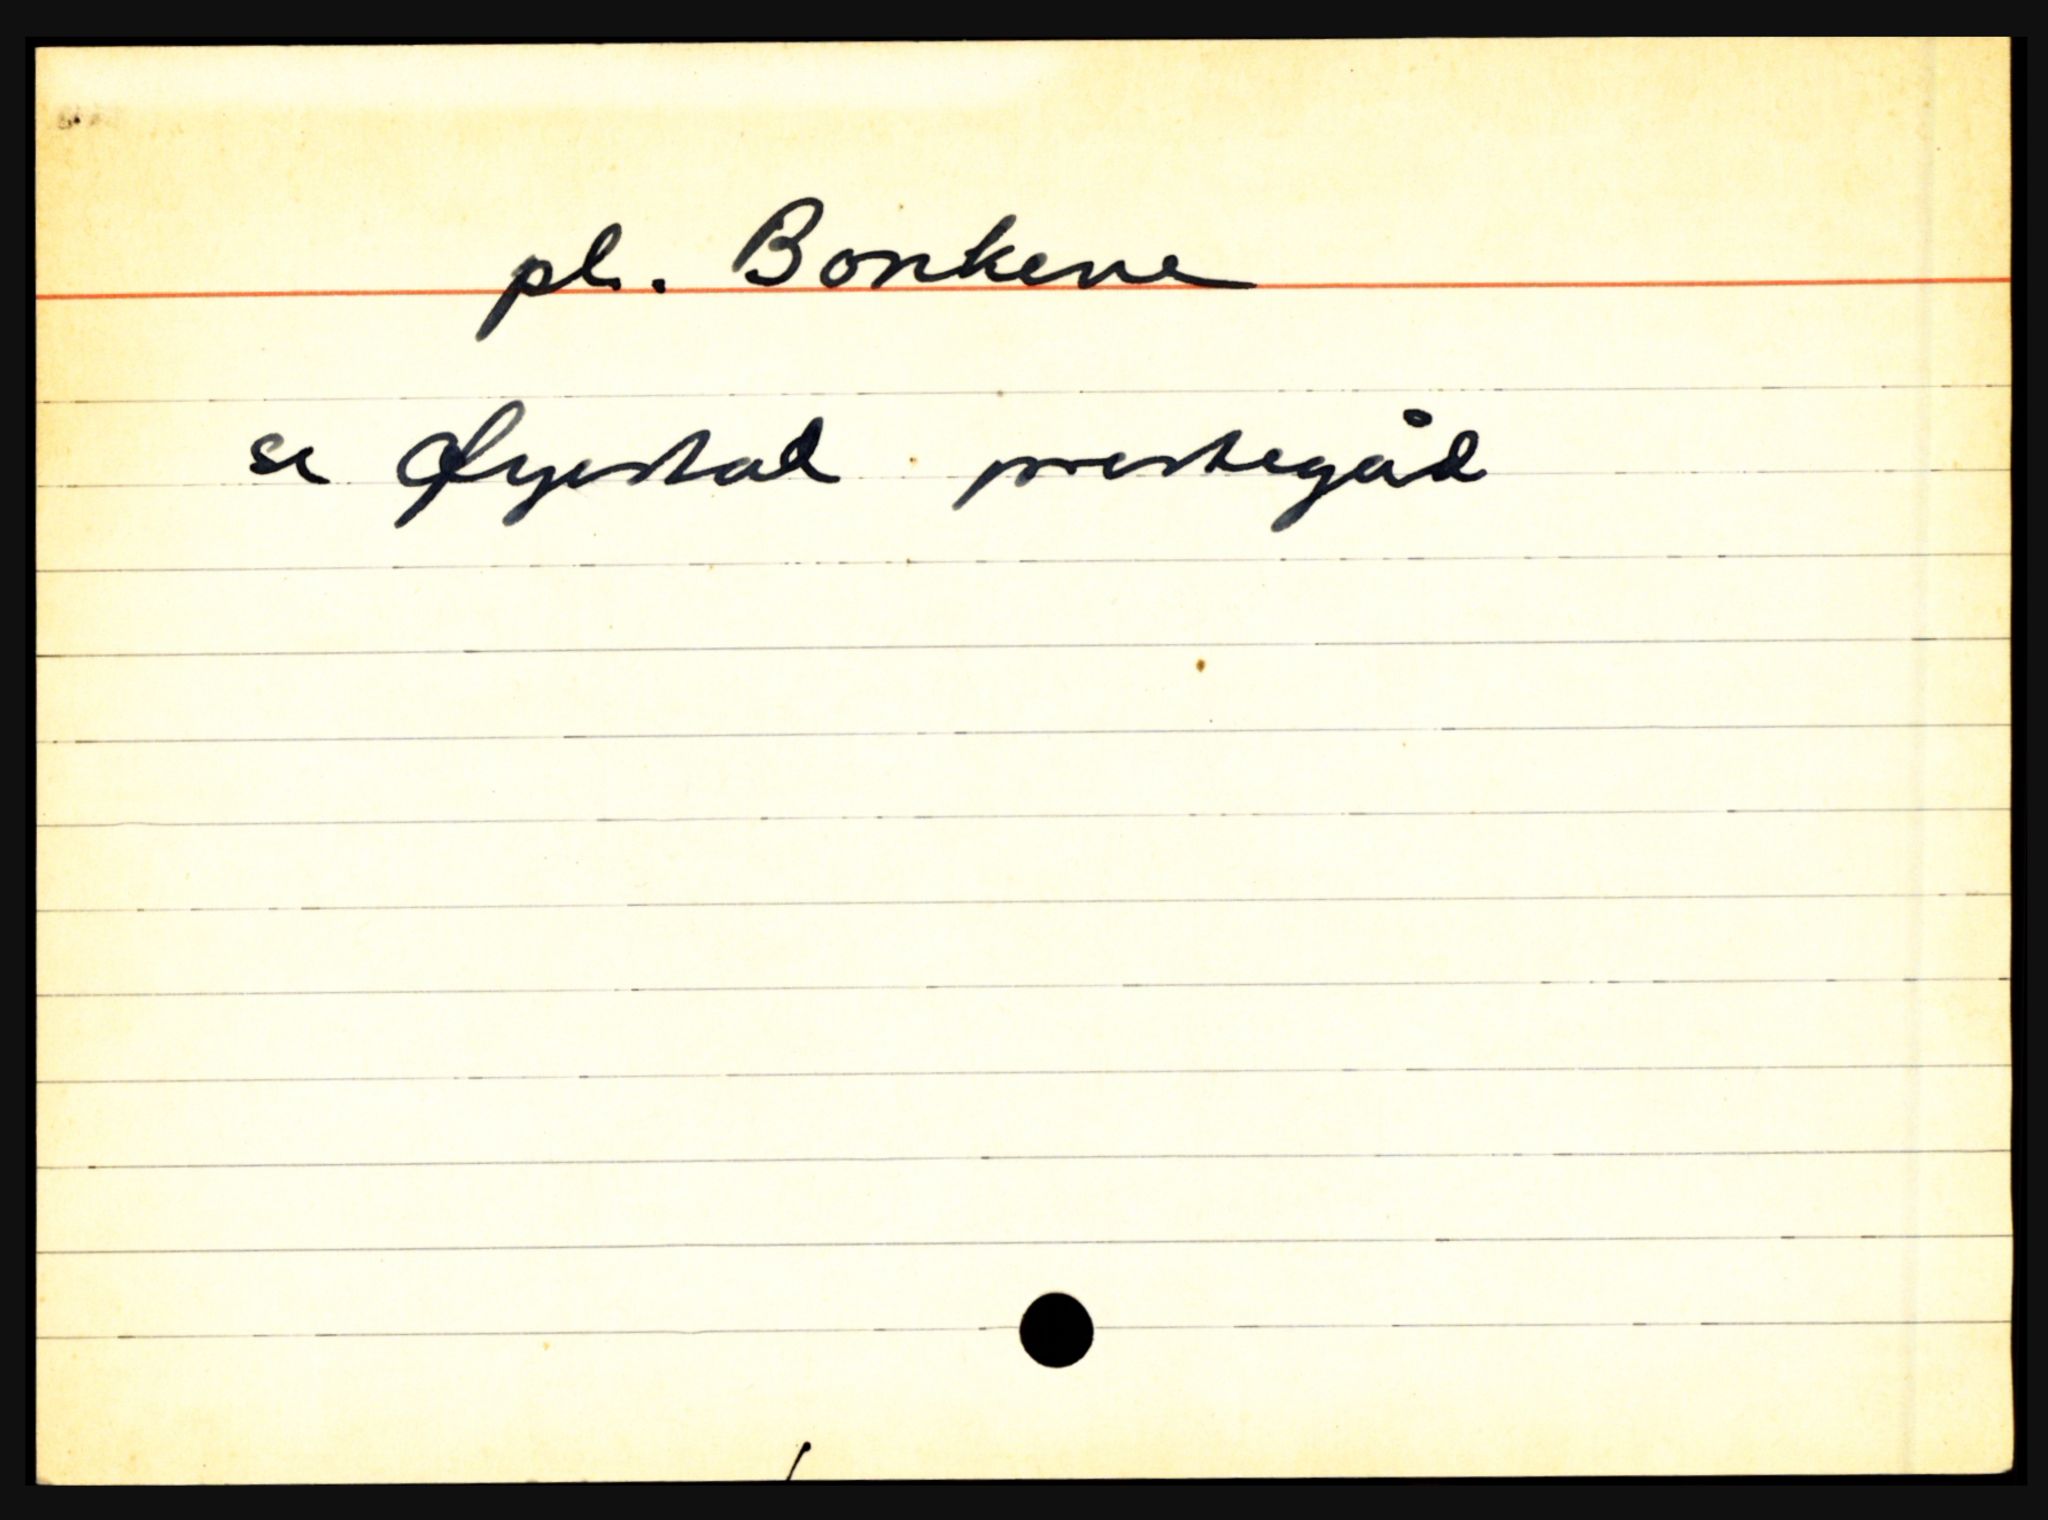 pl. Bonkene
se Øyestad prestegård